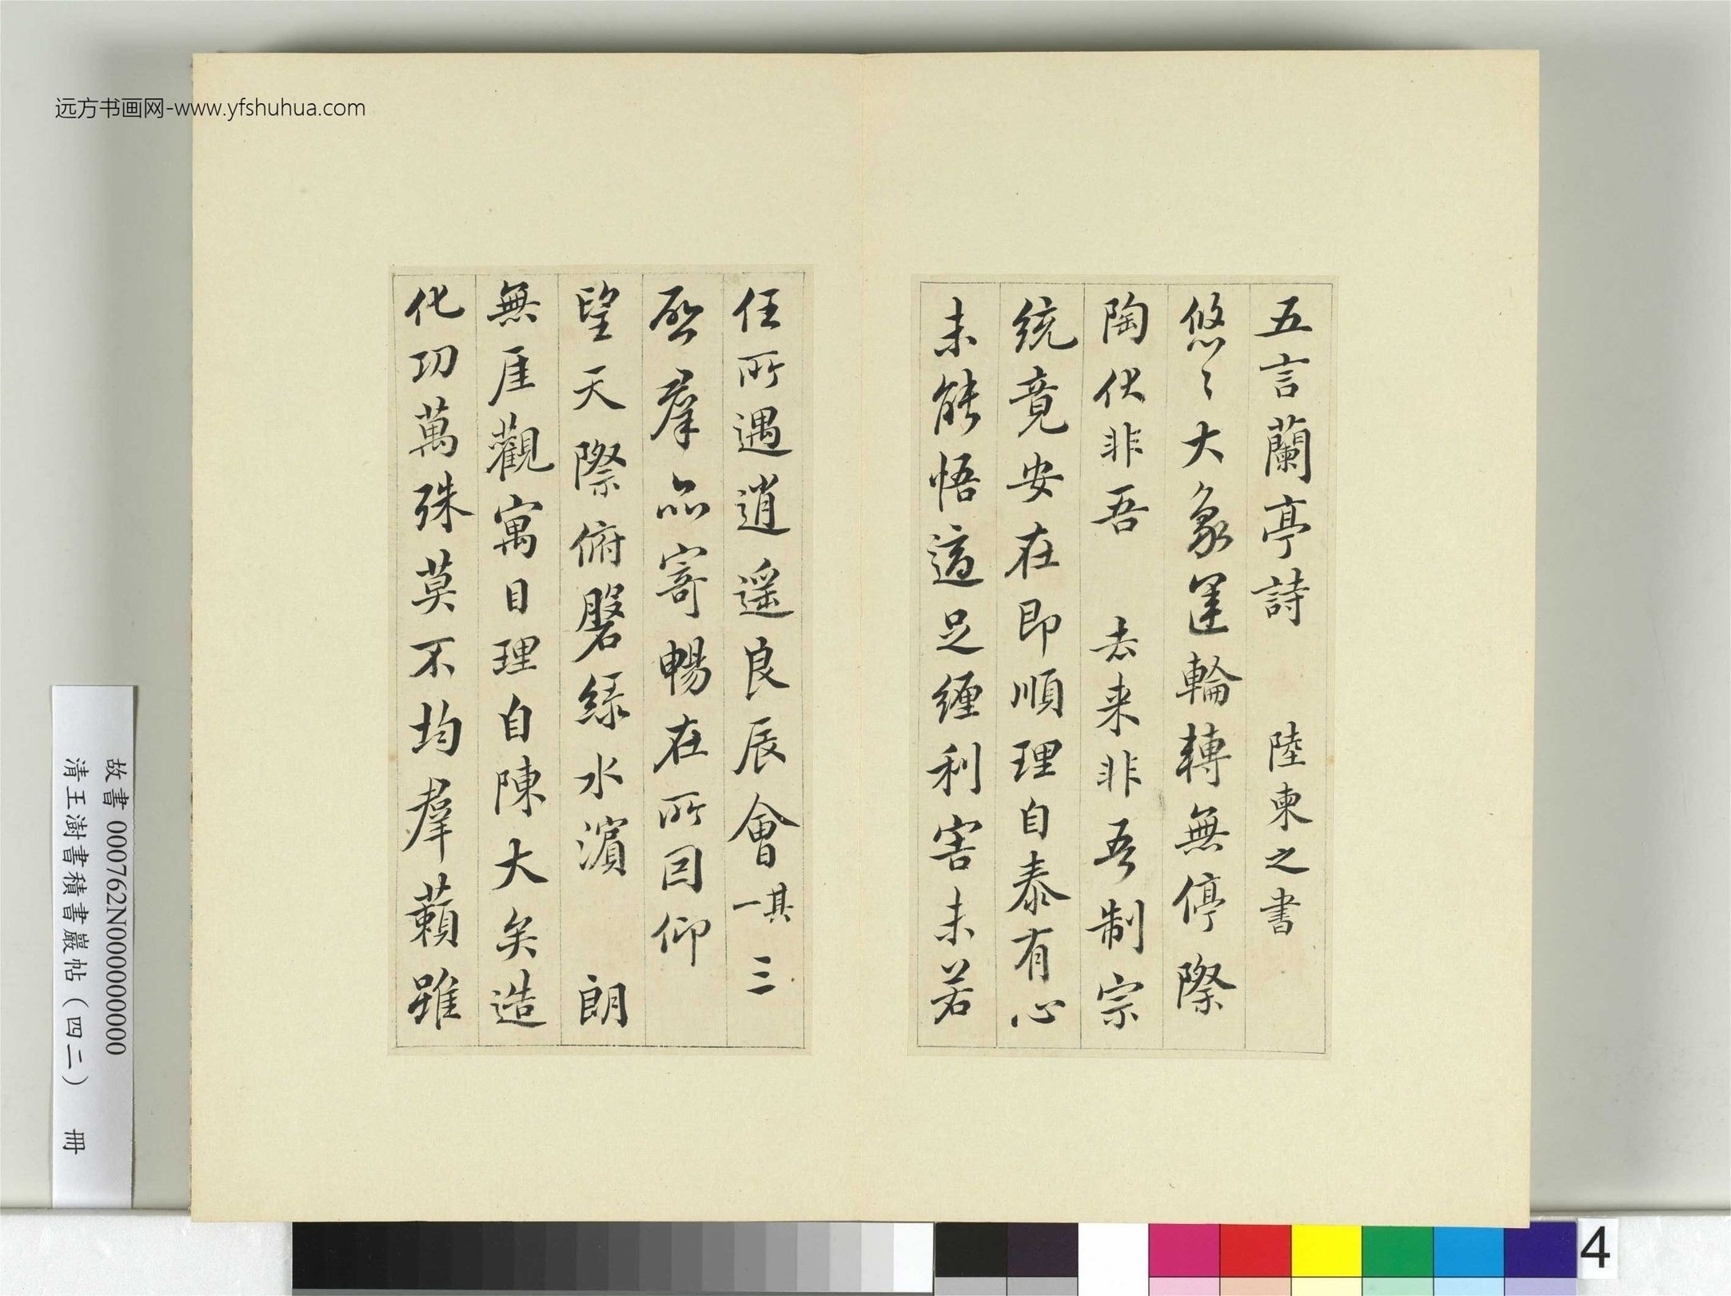 远方书画网-www.yfshuhua.com
五言蘭亭詩 陸柬之書
悠〻大象運輪轉無停際
陶化非吾 去来非吾制宗
統竟安在即順理自泰有心
未能悟適足纏利害未若
任所遇逍遥良辰會一其 三
羣品寄暢在所因仰
望天際俯磐緑水濱 朗
無厓觀寓目理自陳大矣造
化功萬殊莫不均羣籟雖
故書 000762N000000000
清王澍書積書巖帖（四二） 冊
4